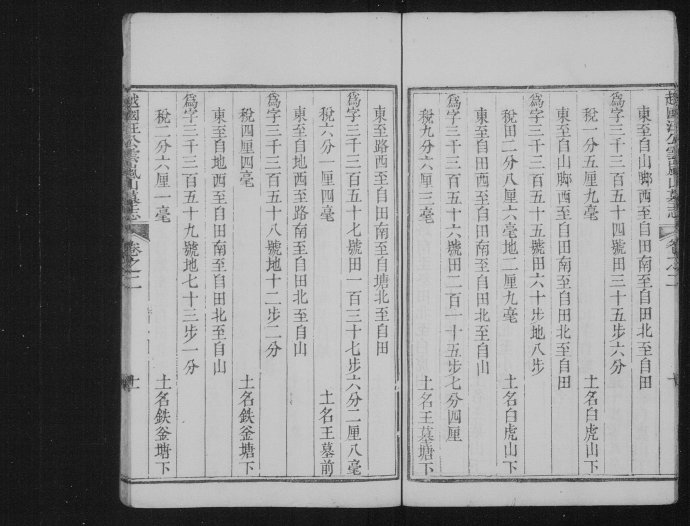 越國汪公雲嵐山墓志 卷之二 十
東至自山脚西至自田南至自田北至自田
稅一分五厘九毫 土名白虎山下
爲字三千三百五十四號田三十五步六分
東至自山脚西至自田南至自田北至自田
稅田二分八厘六毫地二厘九毫 土名白虎山下
爲字三千三百五十五號田六十步地八步
東至自田西至自田南至自田北至自山
爲字三千三百五十六號田二百一十五步七分四厘
稅九分六厘三毫 土名王墓塘下
東至路西至自田南至自塘北至自田
爲字三千三百五十七號田一百三十七步六分二厘八毫
稅六分一厘四毫 土名王墓前
東至自地西至路南至自田北至自山
爲字三千三百五十八號地十二步二分
稅四厘四毫 土名鉄釜塘下
東至自地西至自田南至自田北至自山
爲字三千三百五十九號地七十三步一分
稅二分六厘一毫 土名鉄釜塘下
越國汪公雲嵐山墓志 卷之二 十一